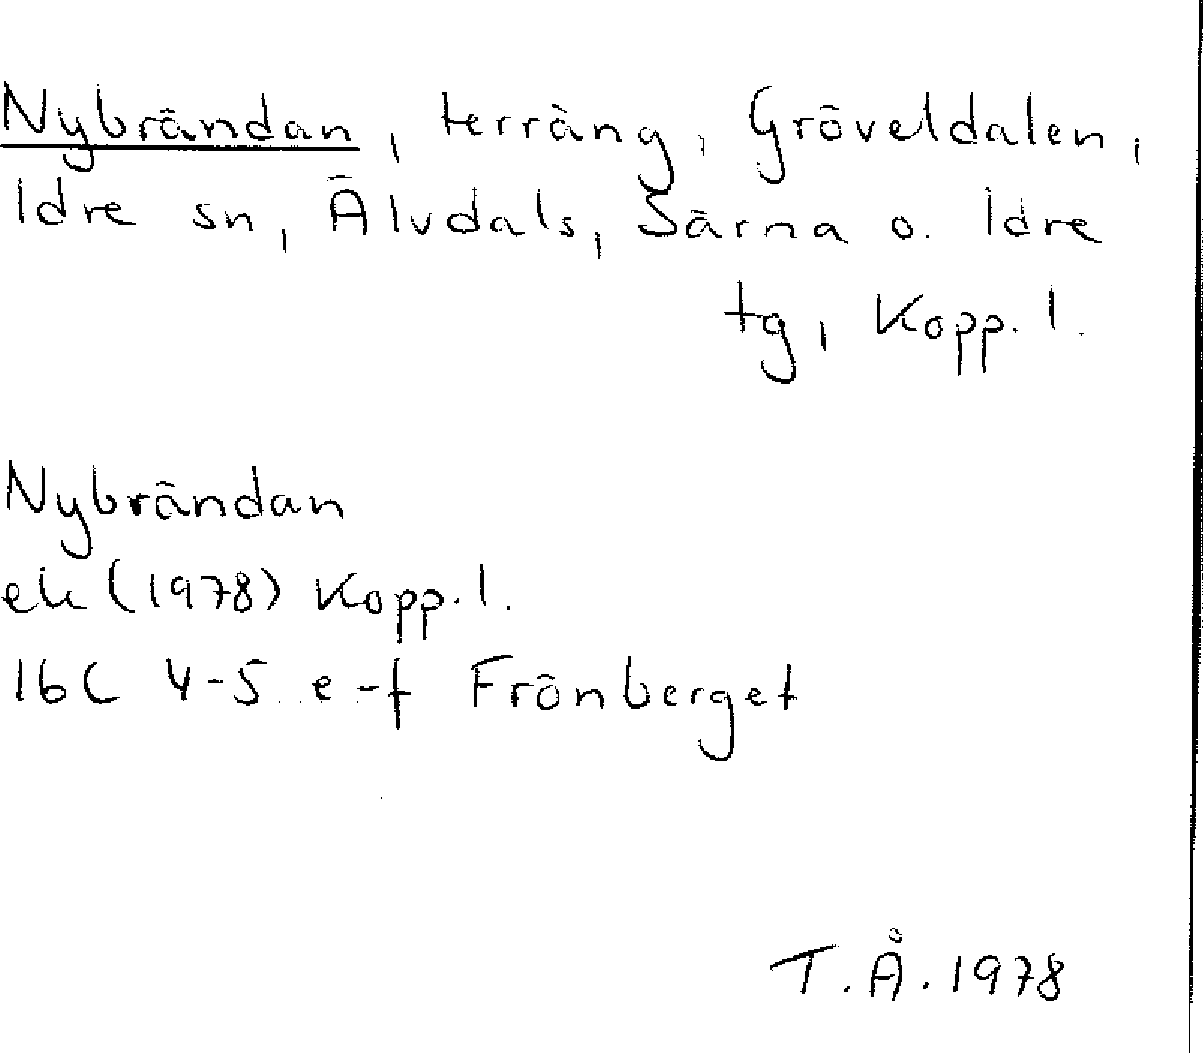 Nybrändan, terräng, Gröveldalen,
Idre sn, Älvdals, Särna o. Idre
tg, Kopp. l.
Nybrändan
ek (1978) Kopp. l.
16C 4-5 e-f Frönberget
T.Å. 1978